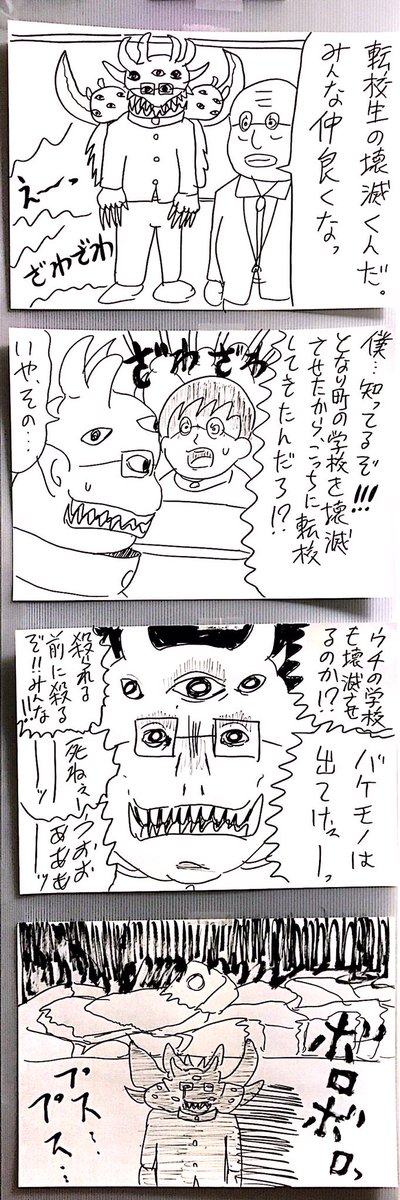 転校生の壊滅くんだ。
みんな仲良くなっ
えーっ
ざわざわ
ざわざわ
僕…知ってるぞ!!!
となり町の学校を壊滅
させたから、こっちに転校
してきたんだろ!?
いや、その…
ウチの学校
も壊滅させ
るのか!?
バケモノは
出てけェーっ
殺られる
前に殺る
ぞ!!みんな
!!!
死ねぇーっ
うおお
ああああーッ
ボロボロっ
プス…
プス…